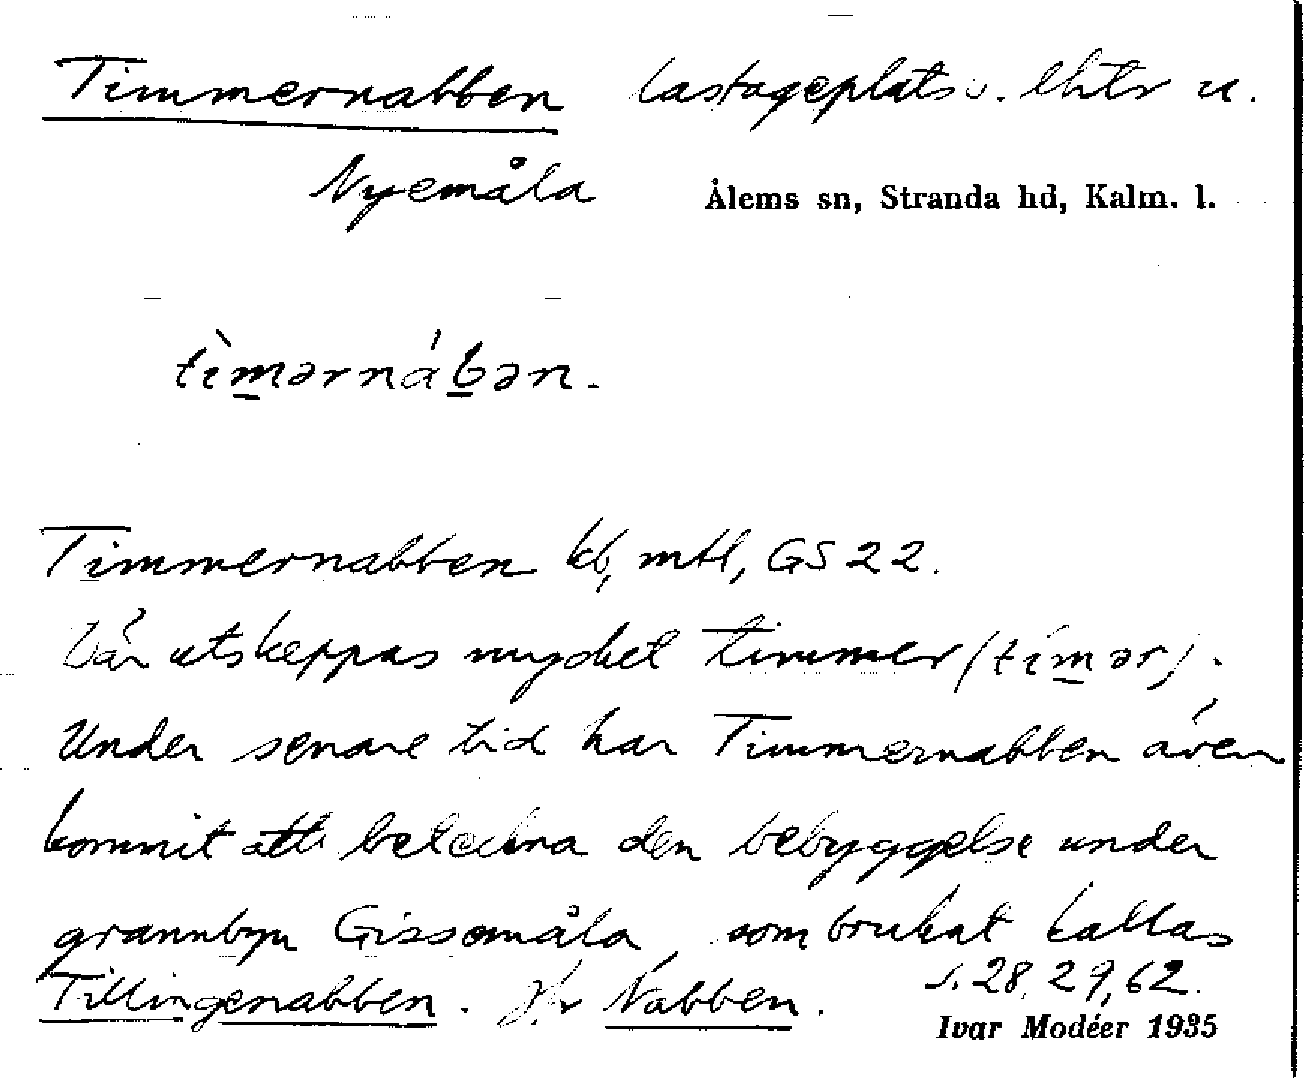 Timmernabben lastageplats o. lhtr u.
Nyemåla
Ålems sn, Stranda hd, Kalm. l.
tìmərnábən.
Timmernabben kb, mtl, GS 22.
Där utskeppas mycket timmer (tímər).
Under senare tid har Timmernabben även
kommit att beteckna den bebyggelse under
grannbyn Gissemåla, som brukat kallas
Tillingenabben. Jfr Nabben.
s. 28, 29, 62.
Ivar Modéer 1935